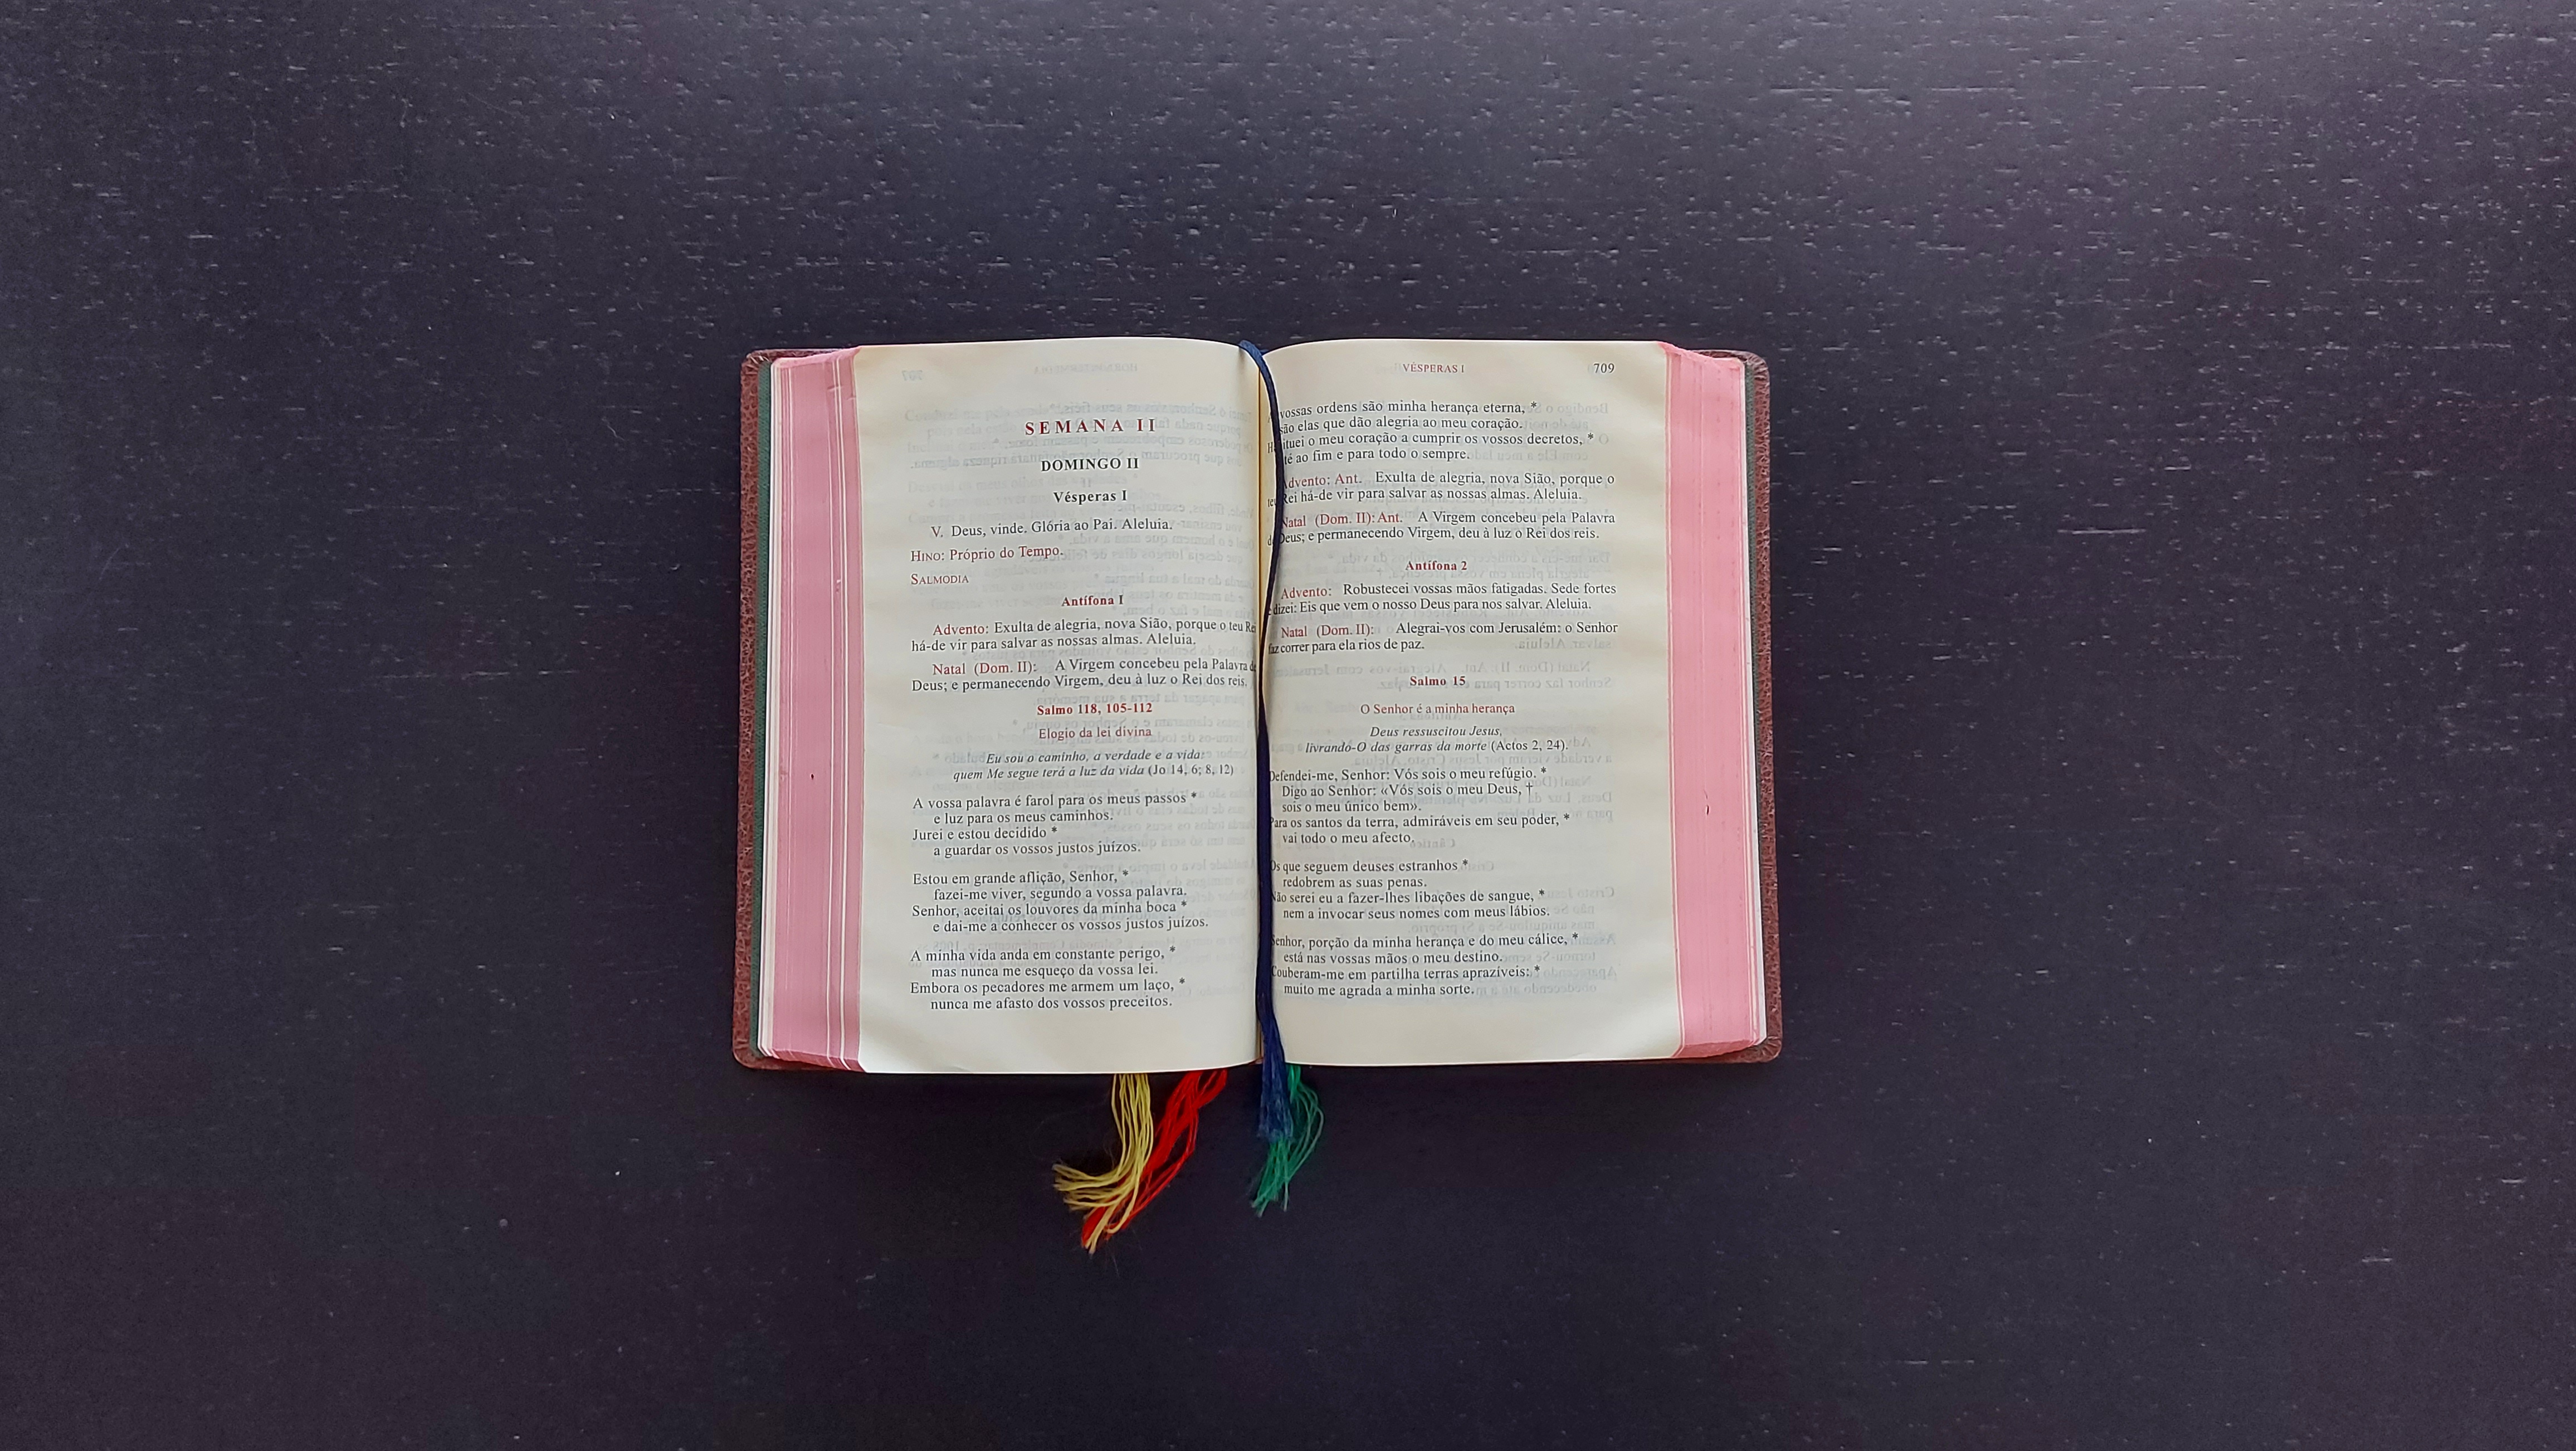 SEMANA II
DOMINGO II
Vésperas I
V. Deus, vinde. Glória ao Pai. Aleluia.
HINO: Próprio do Tempo.
SALMODIA
Antífona I
Advento: Exulta de alegria, nova Sião, porque o teu Rei
há-de vir para salvar as nossas almas. Aleluia.
Natal (Dom. II): A Virgem concebeu pela Palavra de
Deus; e permanecendo Virgem, deu à luz o Rei dos reis.
Salmo 118, 105-112
Elogio da lei divina
Eu sou o caminho, a verdade e a vida:
quem Me segue terá a luz da vida (Jo 14, 6; 8, 12)
A vossa palavra é farol para os meus passos *
e luz para os meus caminhos.
Jurei e estou decidido *
a guardar os vossos justos juízos.
Estou em grande aflição, Senhor, *
fazei-me viver, segundo a vossa palavra.
Senhor, aceitai os louvores da minha boca *
e dai-me a conhecer os vossos justos juízos.
A minha vida anda em constante perigo, *
mas nunca me esqueço da vossa lei.
Embora os pecadores me armem um laço, *
nunca me afasto dos vossos preceitos.
VÉSPERAS I 709
vossas ordens são minha herança eterna, *
são elas que dão alegria ao meu coração.
o meu coração a cumprir os vossos decretos, *
até ao fim e para todo o sempre.
Advento: Ant. Exulta de alegria, nova Sião, porque o
Rei há-de vir para salvar as nossas almas. Aleluia.
Natal (Dom. II): Ant. A Virgem concebeu pela Palavra
Deus; e permanecendo Virgem, deu à luz o Rei dos reis.
Antífona 2
Advento: Robustecei vossas mãos fatigadas. Sede fortes
e dizei: Eis que vem o nosso Deus para nos salvar. Aleluia.
Natal (Dom. II): Alegrai-vos com Jerusalém: o Senhor
faz correr para ela rios de paz.
Salmo 15
O Senhor é a minha herança
Deus ressuscitou Jesus,
livrando-O das garras da morte (Actos 2, 24).
Defendei-me, Senhor: Vós sois o meu refúgio. *
Digo ao Senhor: «Vós sois o meu Deus, †
sois o meu único bem».
Para os santos da terra, admiráveis em seu poder, *
vai todo o meu afecto.
Os que seguem deuses estranhos *
redobrem as suas penas.
Não serei eu a fazer-lhes libações de sangue, *
nem a invocar seus nomes com meus lábios.
Senhor, porção da minha herança e do meu cálice, *
está nas vossas mãos o meu destino.
Couberam-me em partilha terras aprazíveis: *
muito me agrada a minha sorte.